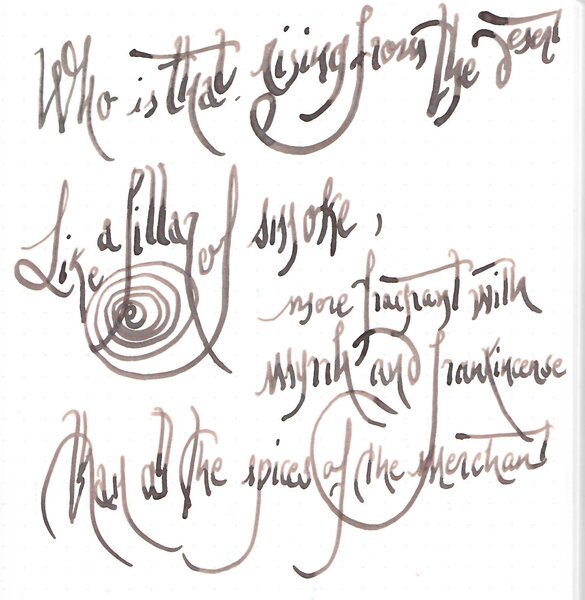 Who is that rising from the desert
Like a pillar of smoke,
more fragrant with
myrrh and frankincense
than all the spices of the merchant